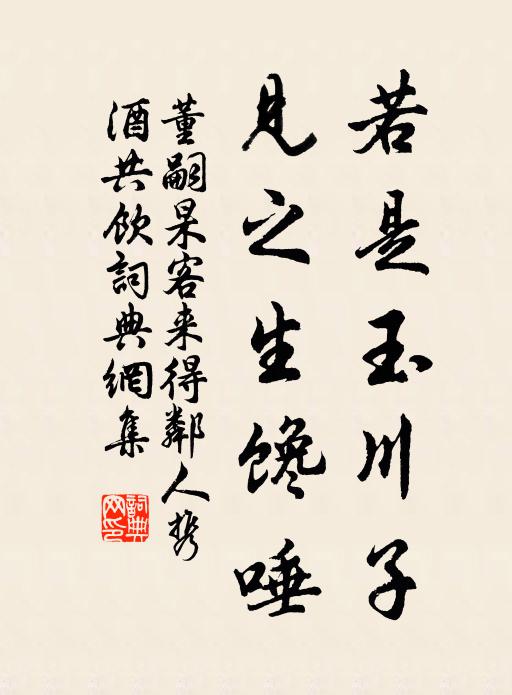 若是玉川子
见之生馋唾
董嗣杲客来得鄰人携
酒共饮詞典網集
詞典
网印